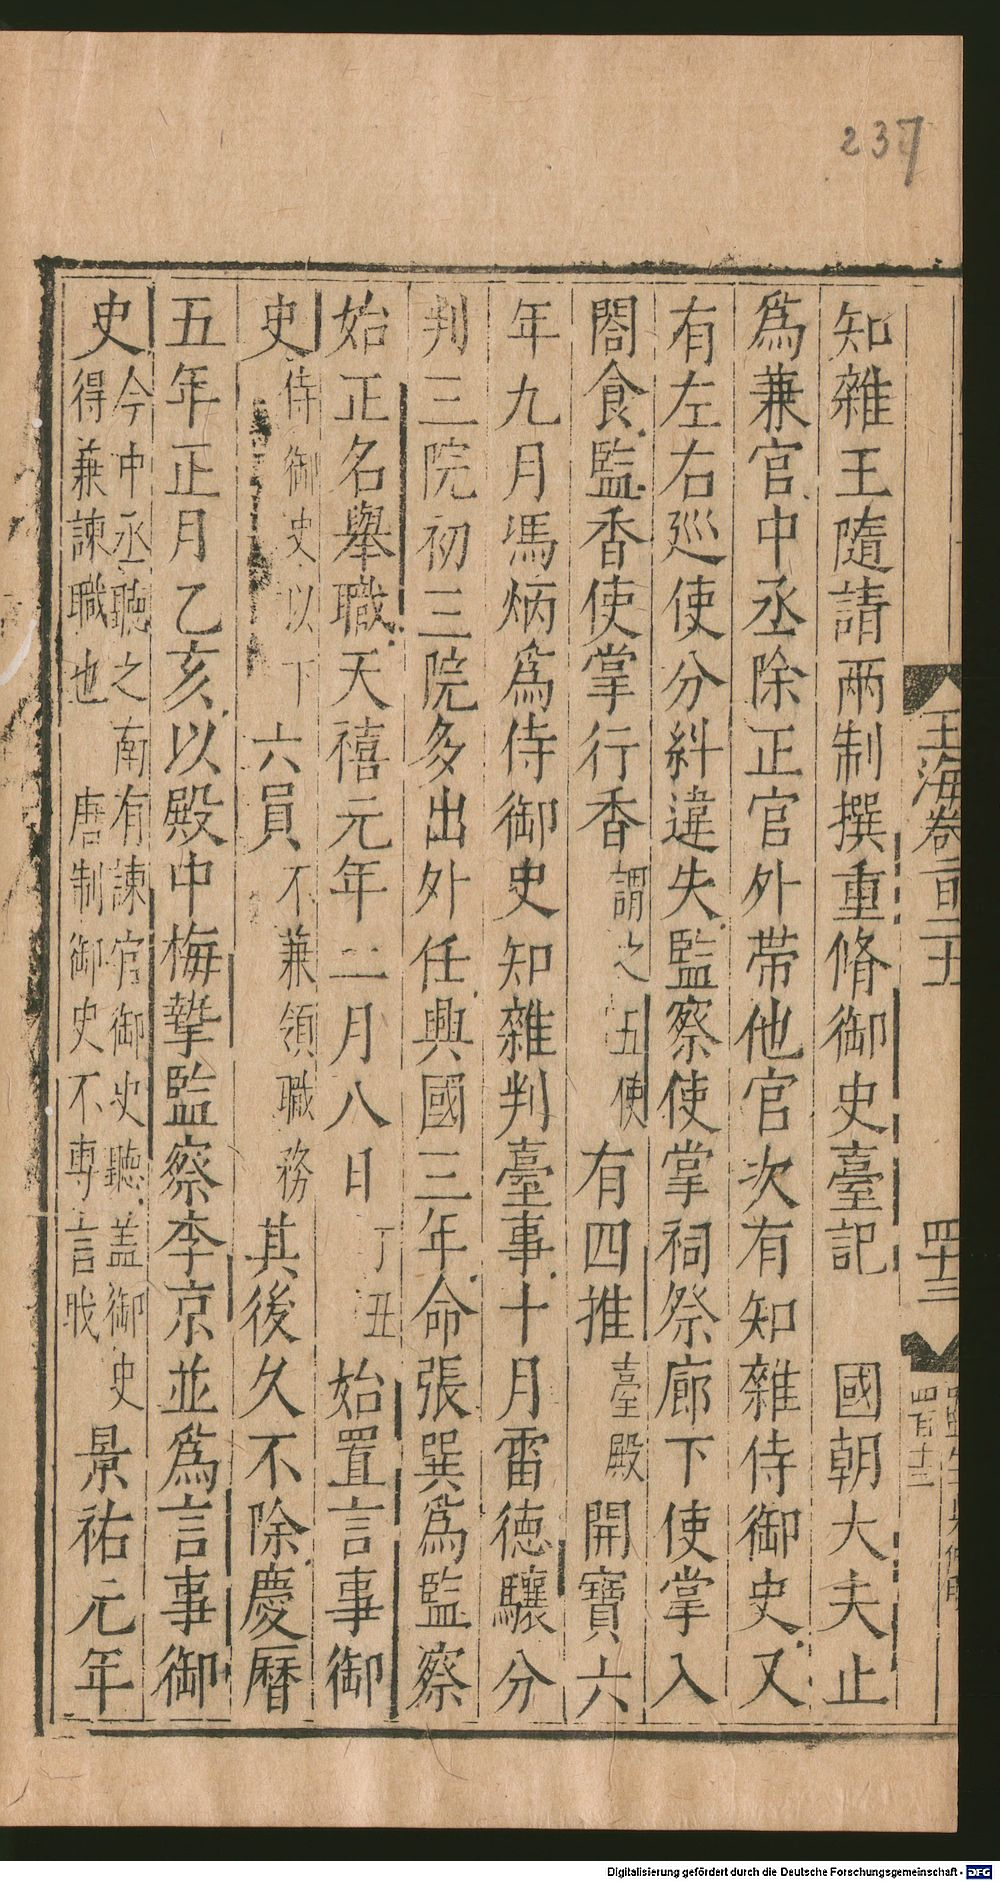 237
玉海卷一百二十一
四十三
知雜王隨請兩制撰重脩御史臺記　國朝大夫止
爲兼官中丞除正官外帶他官次有知雜侍御史又
有左右廵使分糾違失監察使掌祠祭廊下使掌入
閤食監香使掌行香謂之五使有四推臺殿開寶六
年九月馮炳爲侍御史知雜判臺事十月雷德驤分
判三院初三院多出外任興國三年命張巽爲監察
始正名舉職天禧元年二月八日丁丑始置言事御
史侍御史以下六員不兼領職務其後久不除慶曆
五年正月乙亥以殿中梅摯監察李京並爲言事御
史今中丞聽之南有諫官御史聽蓋御史
得兼諫職也　唐制御史不専言職
景祐元年
Digitalisierung gefördert durch die Deutsche Forschungsgemeinschaft - DFG